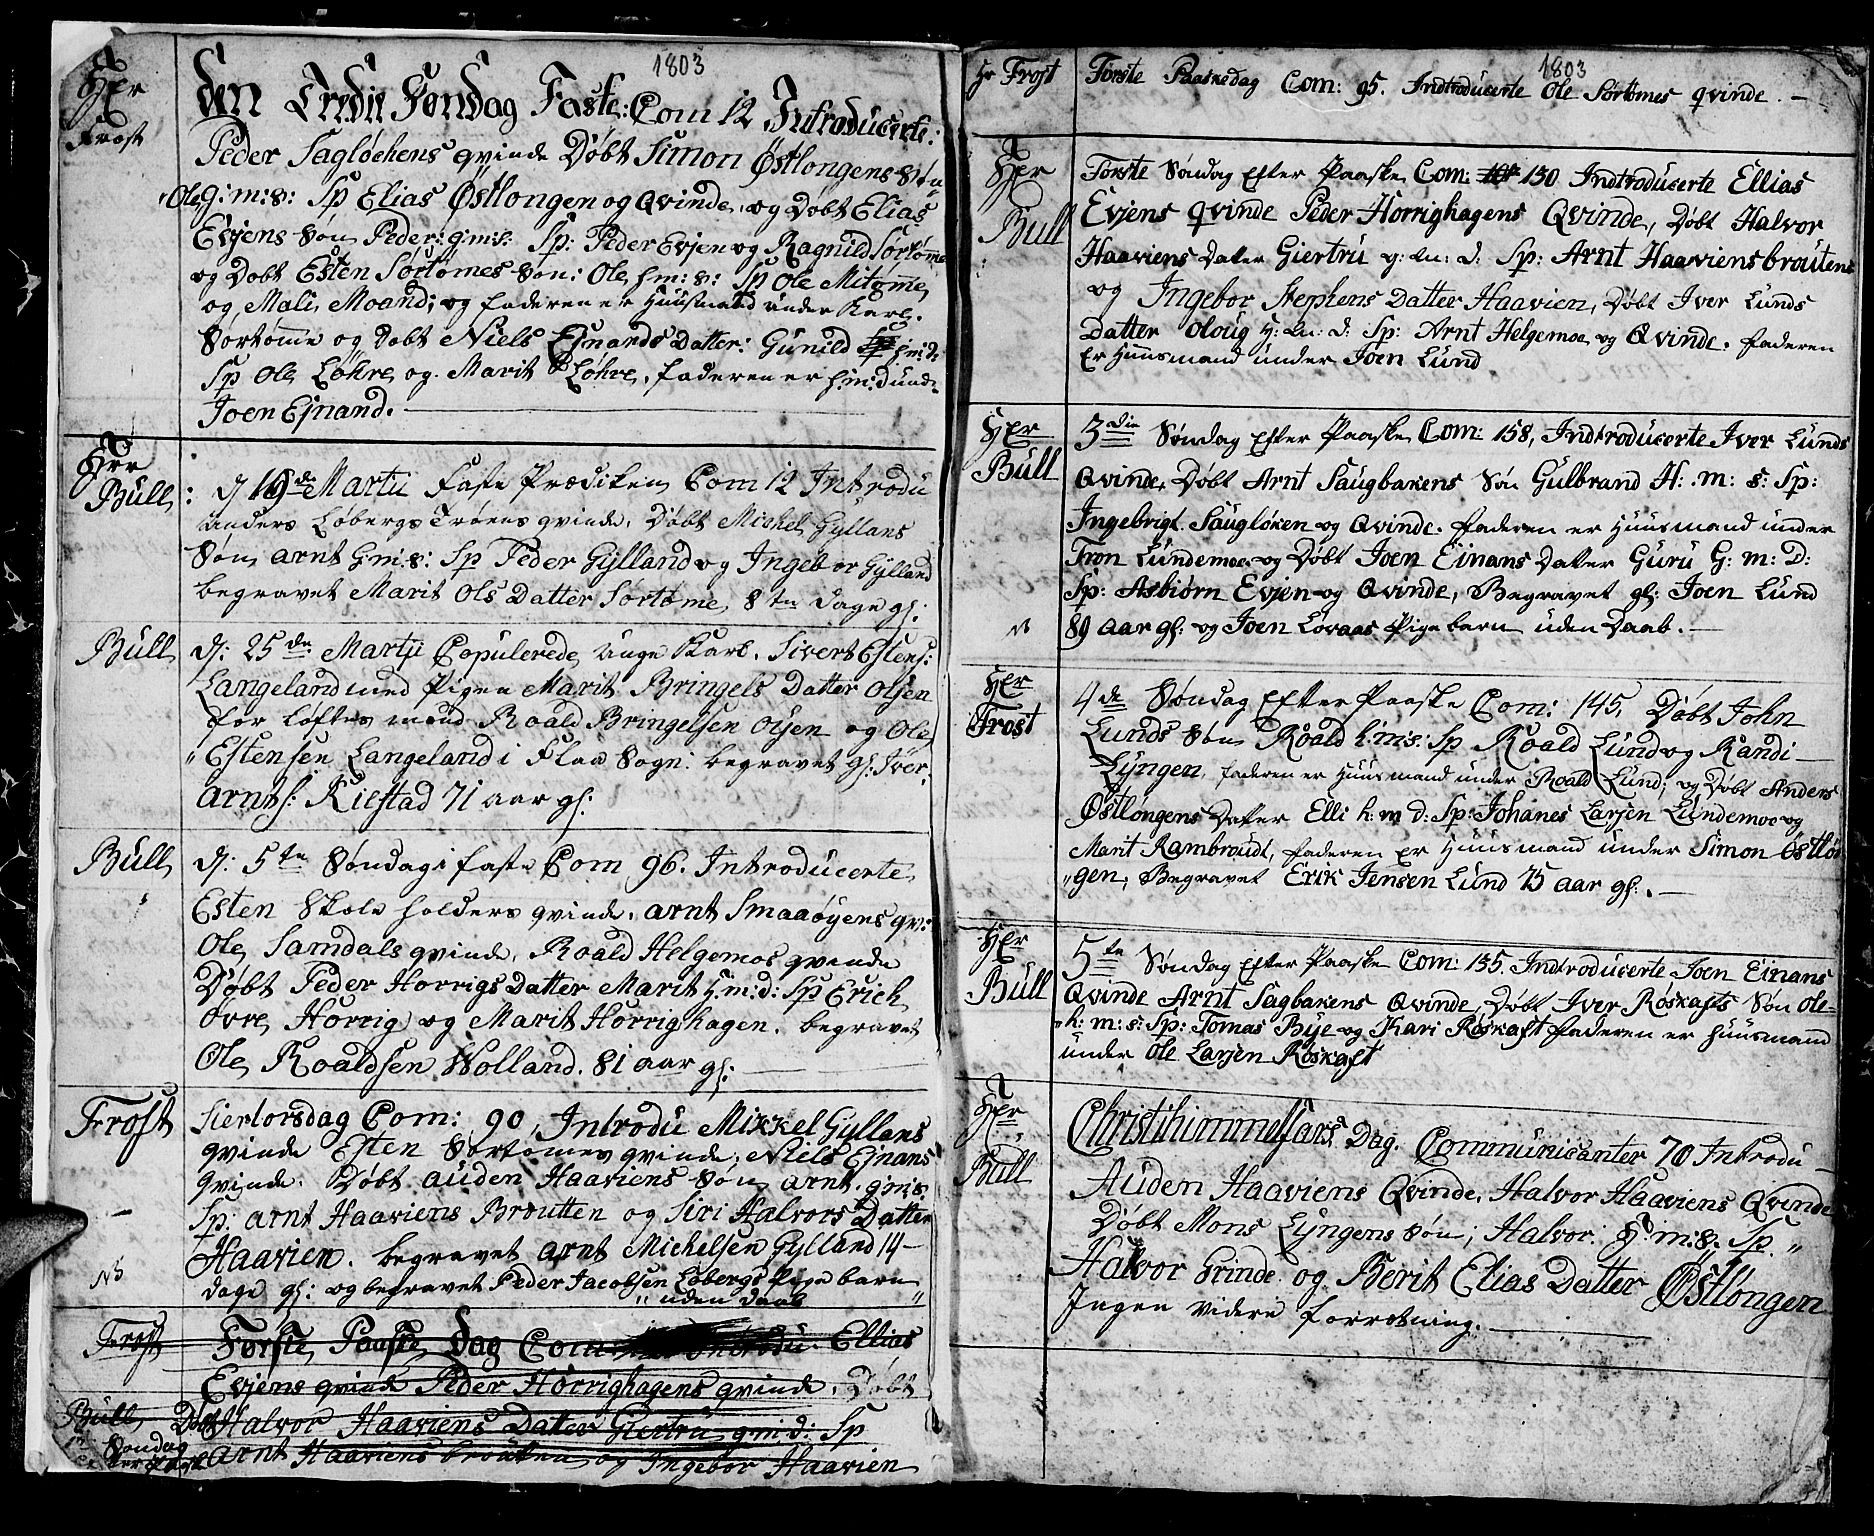 1803
Hr Frost
Den Tredie Søndag Faste: Com 12 Introducerte:
Peder Sagløchens qvinde Døbt Simon Østlongens Søn
Ole g: m: s: Sp Elias Østlongen og Qvinde, og Døbt Elias
Evjens Søn Peder: g: m: s: Sp: Peder Evjen og Ragnild Sørtømme
og Døbt Esten Sørtømes Søn: Ole, h: m: s: Sp Ole Mitømme,
og Mali Moand; og faderen er Huusmand under Karl.
Sørtømme og Døbt Niels Ejnands Datter: Gunild h: m: d:
Sp Ole Løhre, og Marit Løhre, faderen er h: m: d under
Joen Ejnand.
Hrr Bull
d 19de Martii Faste Prædiken Com 12 Introdu
Anders Løbergs Trøens qvinde, Døbt Michel Gyllans
Søn Arnt h: m: s: Sp Peder Gylland og Ingebor Gylland
begravet Marit Ols Datter Sørtøme, 8 ten Dage gl:
Bull
d: 25de Martii Copulerede unge Karl. Sivert Estens:
Langeland med Pigen Marit Bringels Datter Olsen
for løftes mænd Roald Bringelsen Olsen og Ole
Estensen Langeland i Flaa Sogn. begravet gl: Iver
Arnts: Kiestad 71 aar gl:
Bull
d: 5te Søndag i faste Com 96. Introducerte
Esten Skole holders qvinde, Arnt Smaaøyens qv:
Ole Samdals qvinde, Roald Helgemos qvinde
Døbt Peder Horrigs Datter Marit h: m: d: Sp Erich
Øvre Horrig og Marit Horrighagen. begravet
Ole Roaldsen Wolland. 81 aar gl:
Frost
Siertorsdag Com: 90, Introdu Mikkel Gyllans
qvinde Esten Sørtømes qvinde, Niels Ejnans
qvinde. Døbt Auden Haaviens Søn Arnt. g: m: s:
Sp: Arnt Haaviens Broutten og Siri Halvors Datter
Haavien. begravet Arnt Michelsen Gylland 14
Dage gl: og begravet Peder Jacobsen Løbergs Pige barn
uden Daab
Frost
Første Paaske Dag Com Introdu Ellias
Evjens qvinde Peder Horrighagens qvinde, Døbt
Bull, Døbt Halvor Haaviens Datter Giertru g: m: d: Sp
Søndag Arnt Haaviens brouten og Ingebor Haavien
1803
Hr Frost
Første Paaskedag Com: 95. Indtroducerte Ole Sørtømes qvinde.
Hr Bull
Første Søndag Efter Paaske Com: 130 Indtroducerte Ellias
Evjens qvinde Peder Horrighagens Qvinde, Døbt Halvor
Haaviens Dater Giertru g: m: d: Sp: Arnt Haaviensbroutens
og Ingebor Stephens Datter Haavien, Døbt Iver Lunds
Datter Oloug h: m: d: Sp: Arnt Helgemoe og Qvinde. faderen
Er Huusmand under Joen Lund
Hr Bull
3die Søndag Efter Paaske Com: 158, Indtroducerte Iver Lunds
Qvinde, Døbt Arnt Saugbakens Søn Gulbrand H: m: s: Sp:
Ingebrigt Saugløken og Qvinde. faderen er Huusmand under
Tron Lundemoe og Døbt Joen Einans Dater Guru G: m: D:
Sp: Asbiørn Evjen og Qvinde, Begravet gl: Joen Lund
89 aar gl: og Joen Lovaas Pige barn uden Daab.
Hr Frost
4de Søndag Efter Paaske Com: 145, Døbt John
Lunds Søn Roald h: m: s: Sp Roald Lund og Randi
Lyngen, faderen er Huusmand under Roald Lund; og Døbt Anders
Østlongens Dater Elli h: m d: Sp: Johanes Larsen Lundemoe og
Marit Rambroudt, faderen Er Huusmand under Simon Østlon
gen, Begravet Erik Jensen Lund 75 aar gl:.
Hr Bull
5te Søndag Efter Paaske Com: 135. Indtroducerte Joen Einans
Qvinde Arnt Sagbakens Qvinde, Døbt Iver Røskafts Søn Ole
h: m: s: Sp: Tomas Bye og Kari Røskaft faderen er Huusmand
under Ole Larsen Røskaft
Hr Bull
Christihimmelfars Dag. Communicanter 70 Introdu
Auden Haaviens Qvinde, Halvor Haaviens Qvinde
Døbt Mons Lyngens Søn, Halvor: H: m: s: Sp.
Halvor Grinde og Berit Elias Datter Østlongen
Ingen videre forretning.